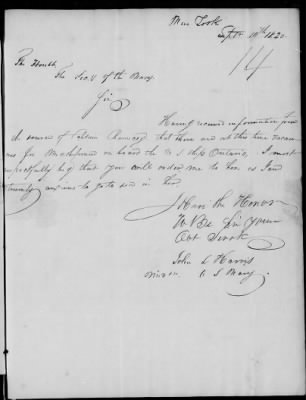 New York
Sept 11th 1820
14
The Honble
The Secy of the Navy
Sir
Having received information from
the source of that there are at this time vacan
cies for Midshipmen on board the U S Ship Ontario, I most
respectfully beg that you will order me to her as I am
anxious to go to sea in her
I Have the Honor
to Be Sir your
Obt Servt
John L Harris
U S Navy